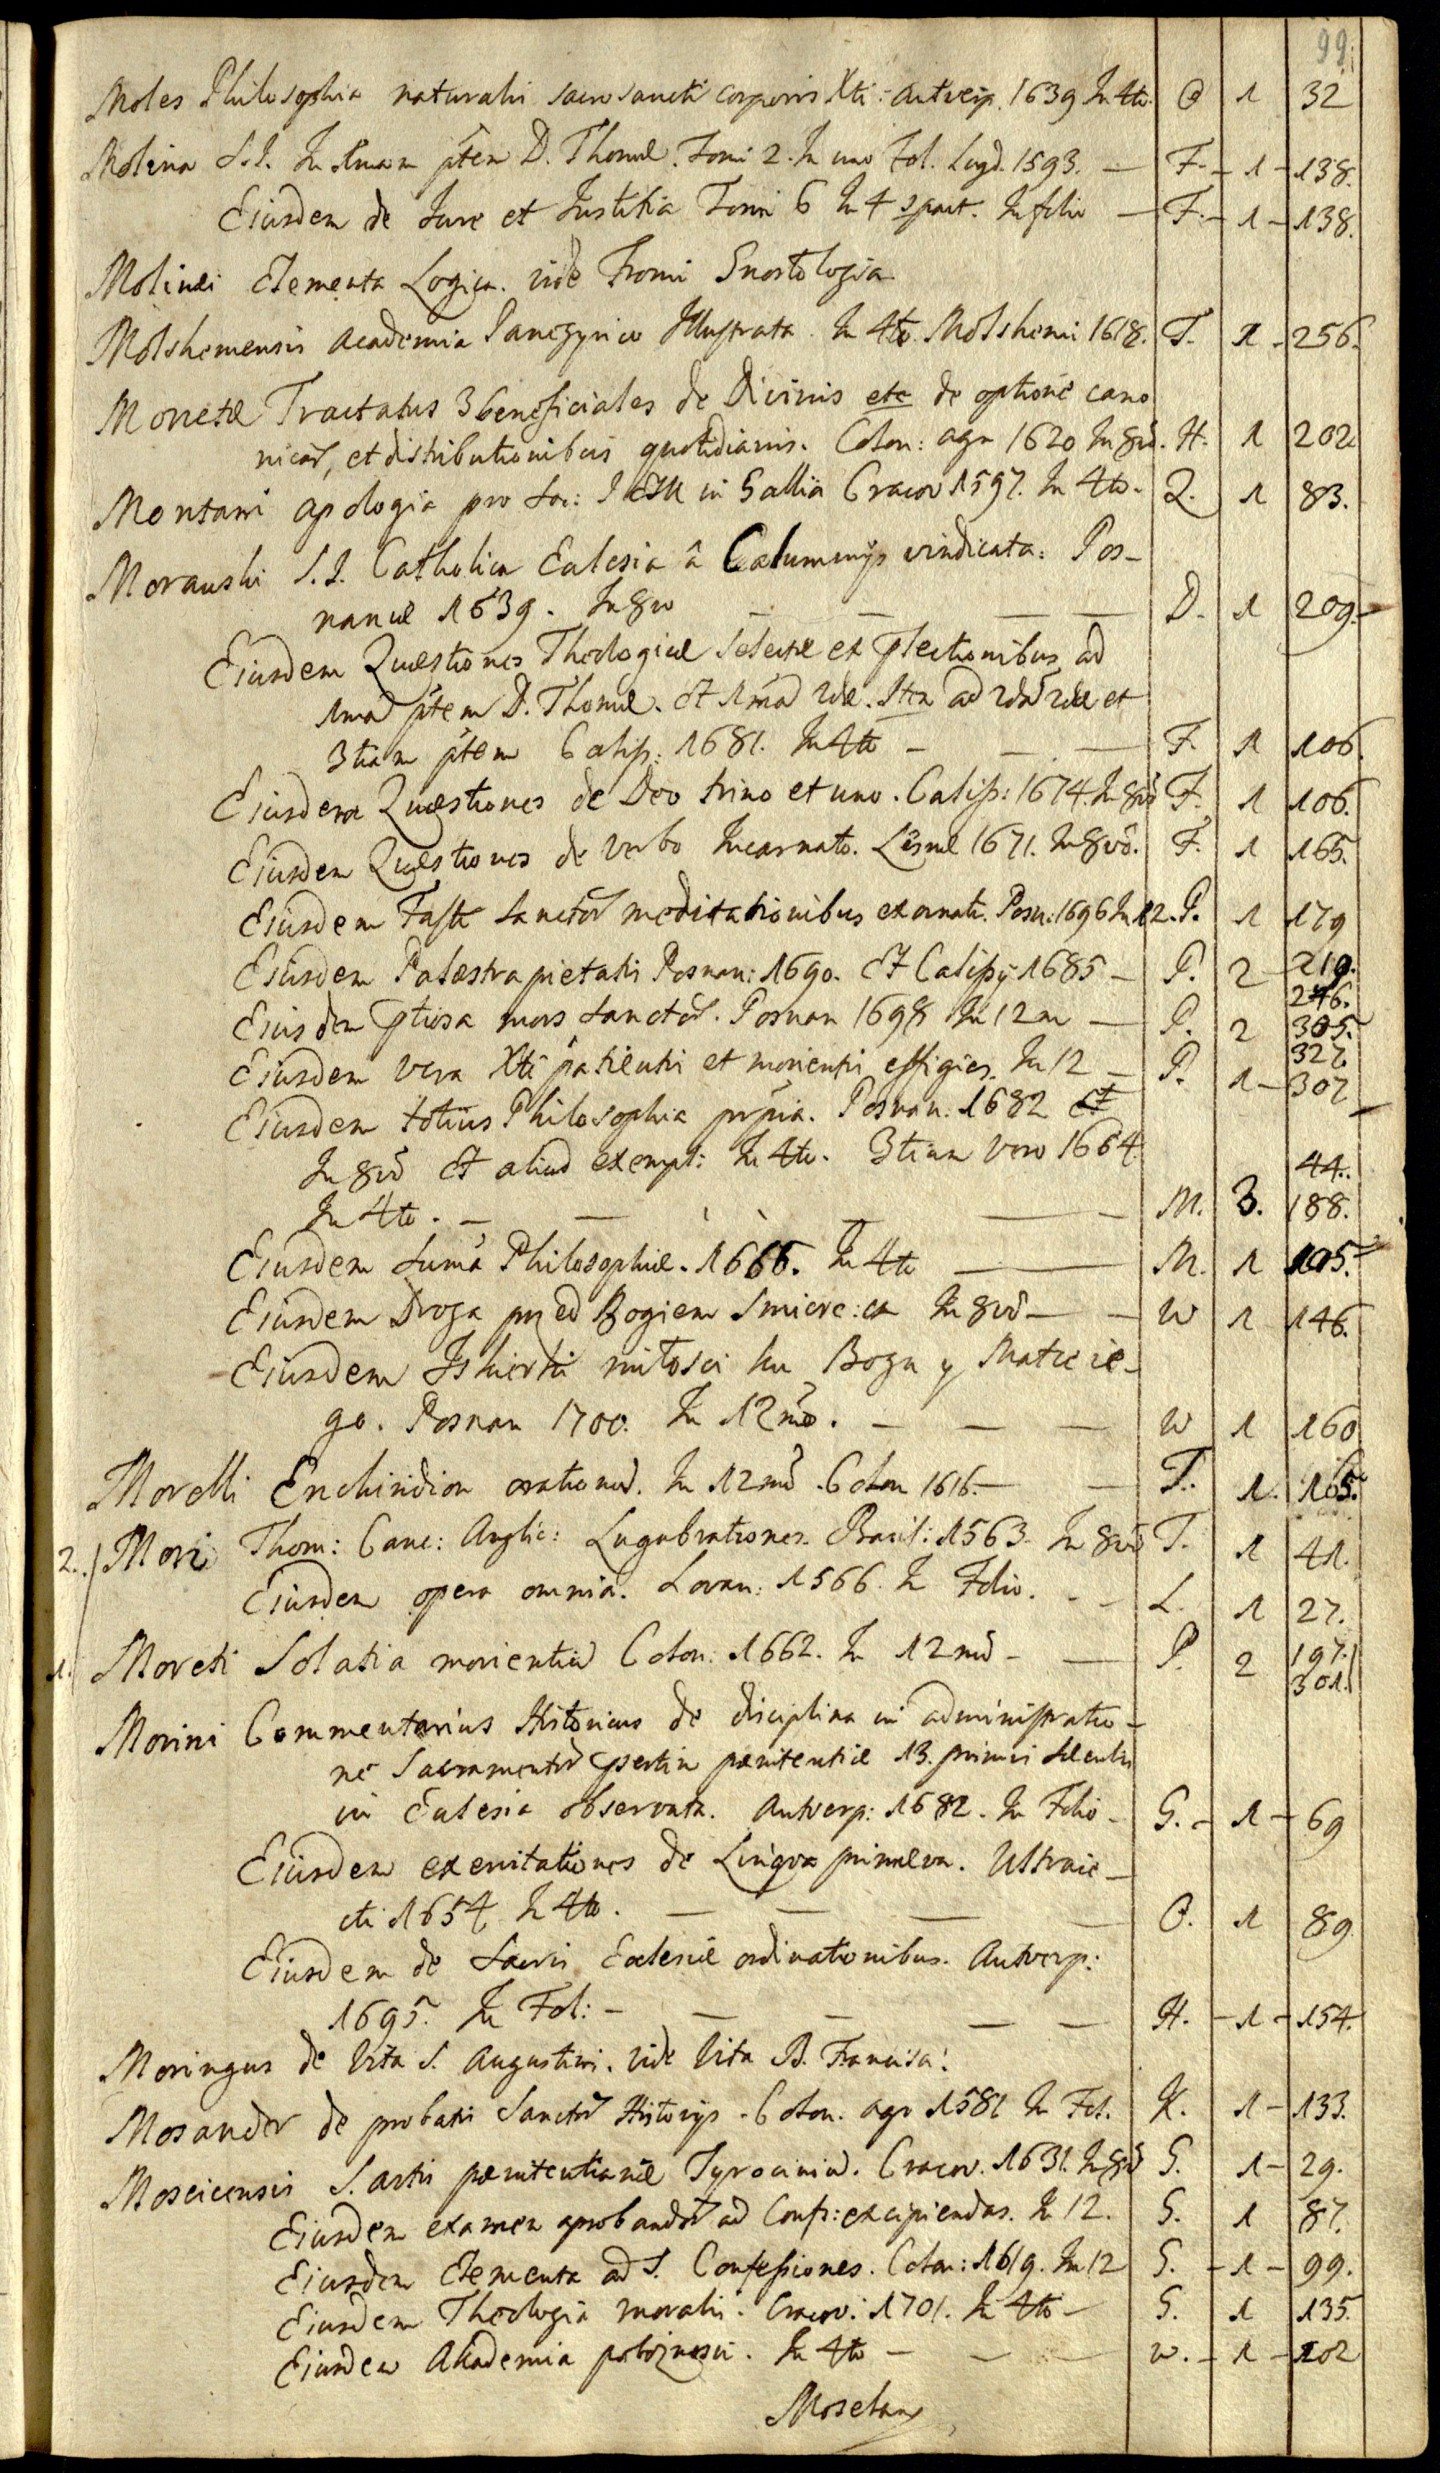 99.
Moles Philosophia naturalis sacrosancti corporis Xti: Antverp. 1639 In 4to. O 1 32
Molina S.J. In 1mam ptem D. Thomæ. Tomi 2. In uno Fol. Lugd. 1593. — F. - 1 - 138.
Eiusdem de Jure et Justitia Tomi 6 In 4 part. In folio — F. - 1 - 138.
Molinæi Elementa Logica. vide Fromi Gnostologia
Molshemensis Academia Panegyrico Illustrata. In 4to. Molshemii 1618. T. 1 - 256.
Monetæ Tractatus 3 beneficiales de Divinis etc de optione cano
nicar, et distributionibus quotidianis. Colon: agr 1620 In 8vo. H. 1 202
Montani Apologia pro Soc: JESU in Gallia Cracov 1597. In 4to. Q. 1 83.
Morawski S.J. Catholica Eclesia â Calumnijs vindicata. Pos-
naniæ 1639. In 8vo — — — D. 1 209.
Eiusdem Quæstiones Theologicæ selectæ ex Plectionibus ad
1mã ptem D. Thomæ. Et 1mã 2dæ. Item ad 2dã 2dæ et
3tiam ptem Calisz: 1681. In 4to — — — F. 1 106.
Eiusdem Quæstiones de Deo trino et uno. Calisz: 1674. In 8vo F. 1 106.
Eiusdem Quæstiones de verbo Incarnato. Lesnæ 1671. In 8vo. F. 1 165.
Eiusdem Fasti Sanctor meditationibus exornati. Posn: 1696 In 12. P. 1 179
Eiusdem Palæstra pietatis Posnan: 1690. Et Calissÿ 1685 — P. 2 210.
246.
Eiusdem Ptiosa mors Sanctor. Posnan 1698 In 12m — P. 2 305.
327.
Eiusdem vera Xti patientis et morientis effigies. In 12 — P. 1 - 307
Eiusdem totius Philosophia prpia. Posnan. 1682 Et
In 8vo Et aliud exempl: In 4to. 3tium vero 1664. 44.
In 4to. — — — M. 3. 188.
Eiusdem Suma Philosophiæ. 1666. In 4to — M. 1 105.
Eiusdem Droga przed Bogiem Smierc:ia In 8vo — — W 1 146.
Eiusdem Iskierki miłosci ku Bogu y Matce ie-
go. Posnan 1700. In 12mo. — — — W 1 160
Morelli Enchiridion orationũ. In 12mo. Colon 1616. — — T. 1. 165.
2. Mori Thom: Canc: Anglic: Lugubrationes. Basil: 1563. In 8vo T. 1 41.
Eiusdem opera omnia. Lovan: 1566. In Folio. - - L. 1 27.
1. Moreti Solatia morientiũ Colon: 1662. In 12mo — — P. 2 197.
301.
Morini Commentarius Historicus de disciplina in administratio-
ne Sacramentor Psertim pænitentiæ 13. primis sæculis
in Eclesia observata. Antverp: 1682. In Folio — G. - 1 - 69
Eiusdem exercitationes de Lingva primæva. Ultraie-
cti 1654 In 4to. — — — — O. 1 89
Eiusdem de Sacris Eclesiæ ordinationibus. Antverp:
1695. In Fol: — — — — — H. - 1 - 154.
Moringus de Vita S. Augustini. vide Vita B. Francisci.
Mosander de probatis Sanctor Historijs. Colon. agr 1581 In Fol. K. 1 - 133.
Moscicensis S. artis pænitentiariæ Tyrociniũ. Cracov. 1631. In 8vo G. 1 - 29.
Eiusdem examen aprobandor ad Confs: excipiendas. In 12. G. 1 87.
Eiusdem Elementa ad S. Confessiones. Colon: 1619. In 12 G. - 1 - 99.
Eiusdem Theologia moralis. Cracov: 1701. In 4to — G. 1 135.
Eiusdem Akademia pobożnosci. In 4to — — — W. - 1 - 102